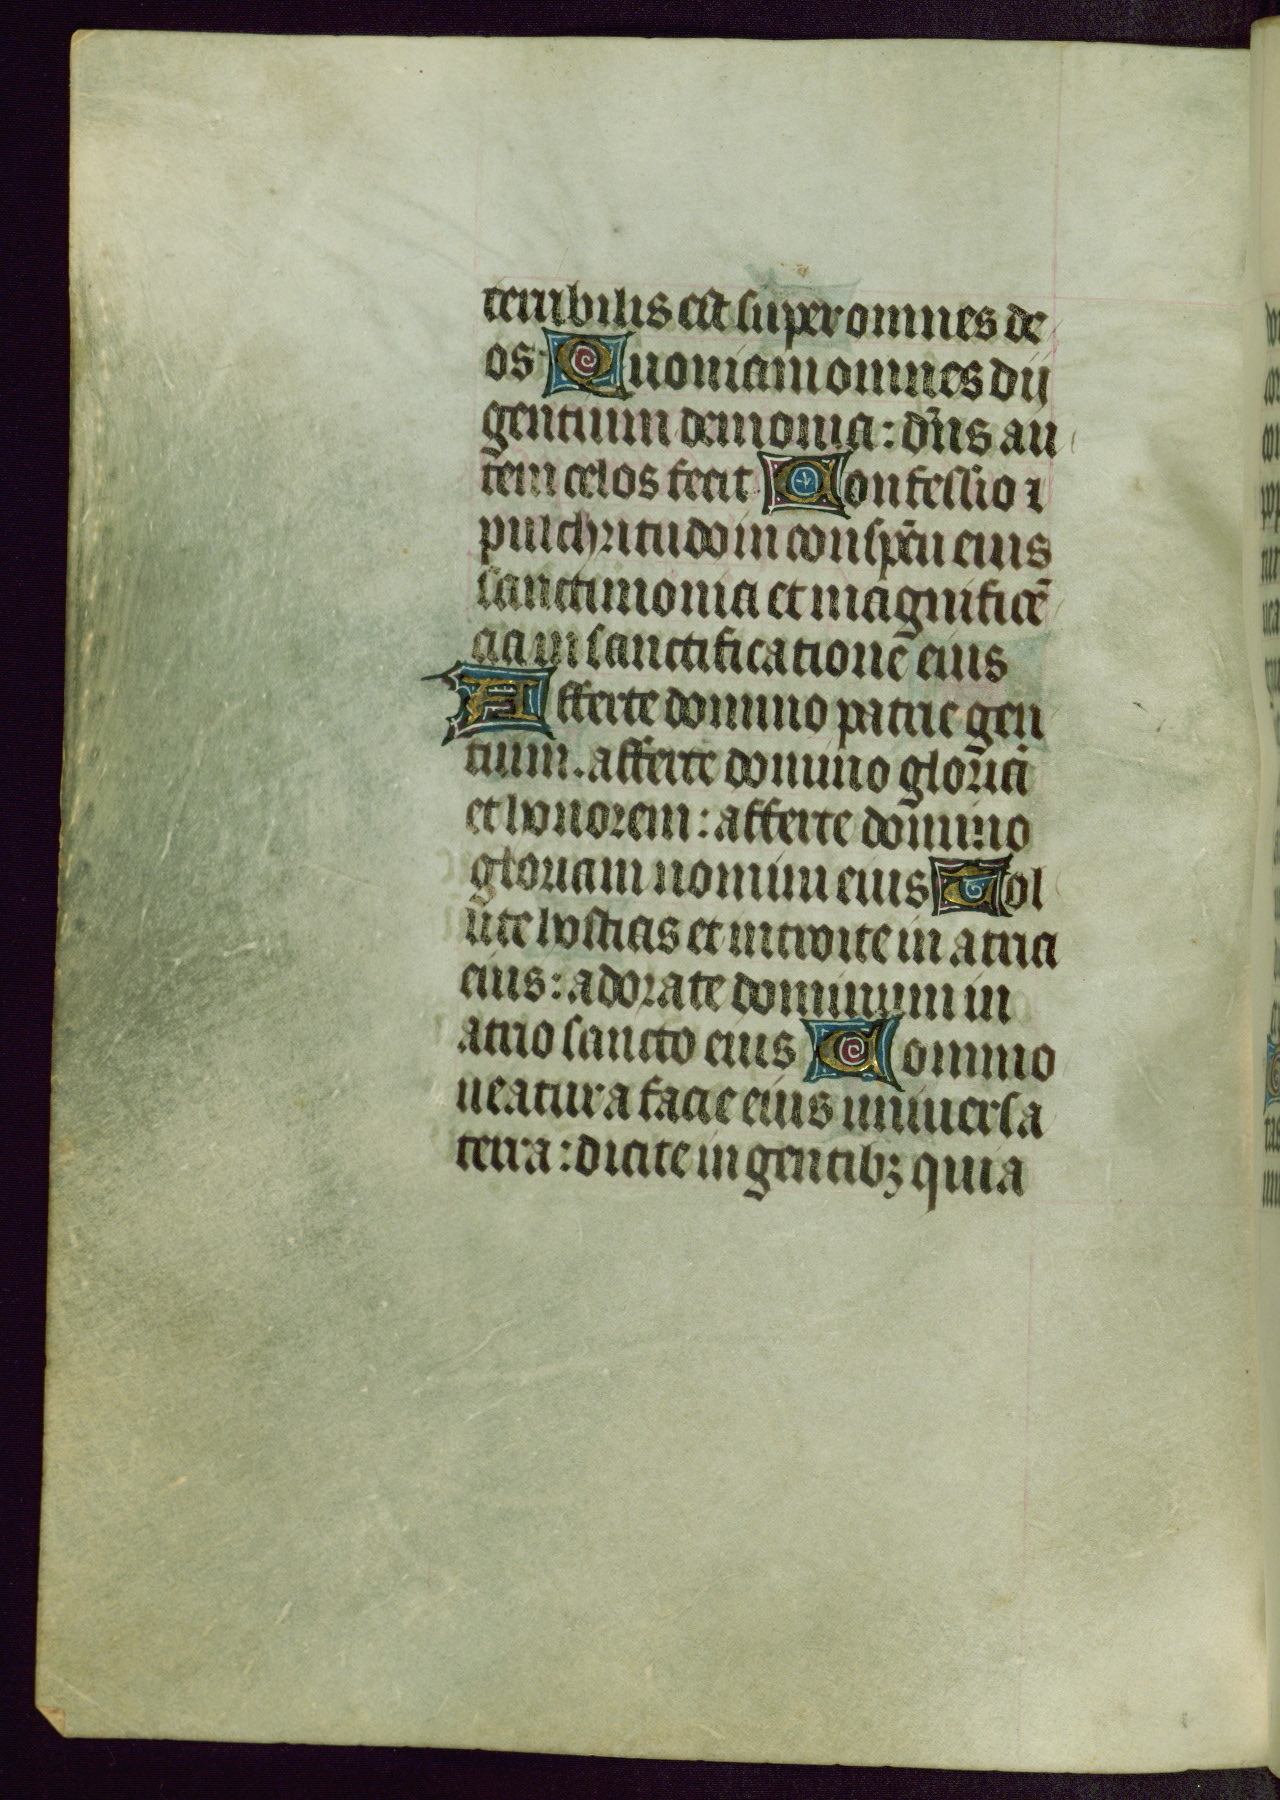 terribilis est super omnes de
os Quoniam omnes dij
gentium demonia: dn̄s au
tem celos fecit Confessio ⁊
pulchritudo in conspc̄tu eius
sanctimonia et magnificē
cia in sanctificationē eius
Afferte domino patrie gen
tium. afferte domino glor̄ia
et honorem: afferte domino
gloriam nomini eius Tol
lite hostias et introite in atria
eius: adorate dominum in
atrio sancto eius Commo
ueatur a facie eius uniuersa
terra: dicite in gentibꝫ quia